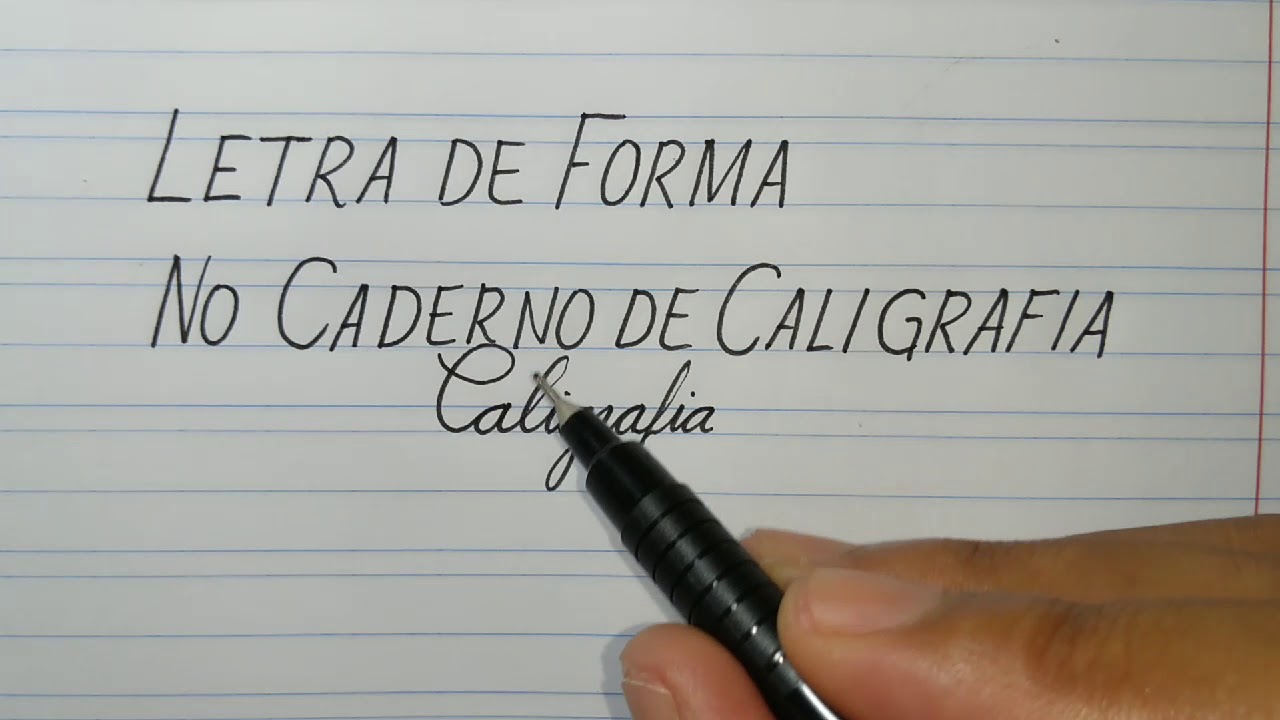 LETRA DE FORMA
NO CADERNO DE CALIGRAFIA
Caligrafia